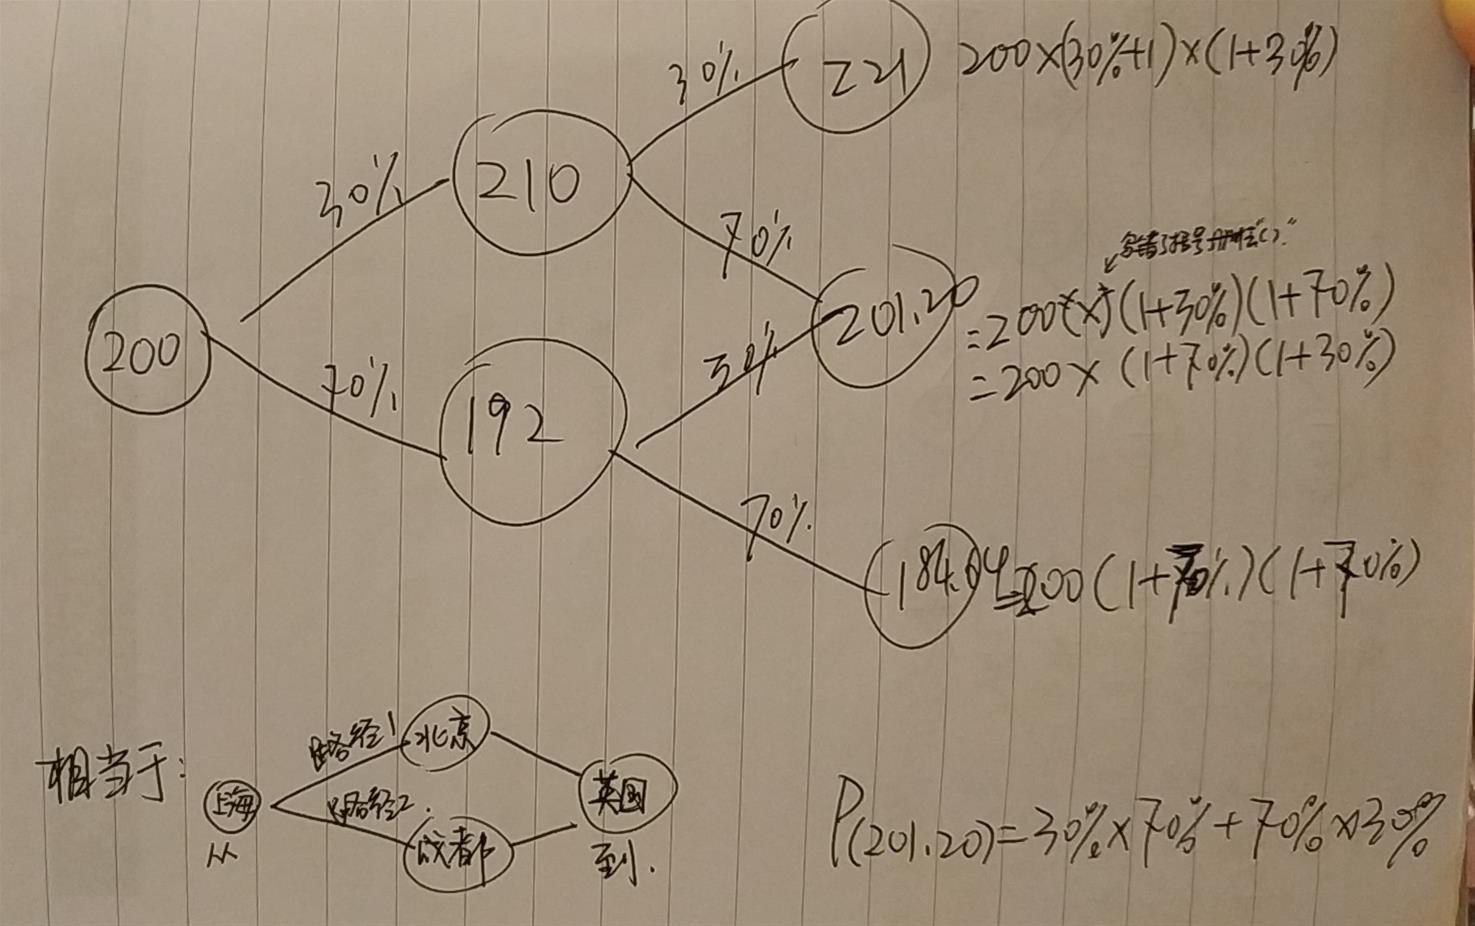 30%
221
200×(30%+1)×(1+30%)
30%
210
70%
写错了括号
200
201.20
=200(×)(1+30%)(1+70%)
70%
30%
=200×(1+70%)(1+30%)
192
70%
184.04=200(1+70%)(1+70%)
相当于:
上海
路径1
北京
英国
路径2.
成都
从
到.
P(201.20)=30%×70%+70%×30%